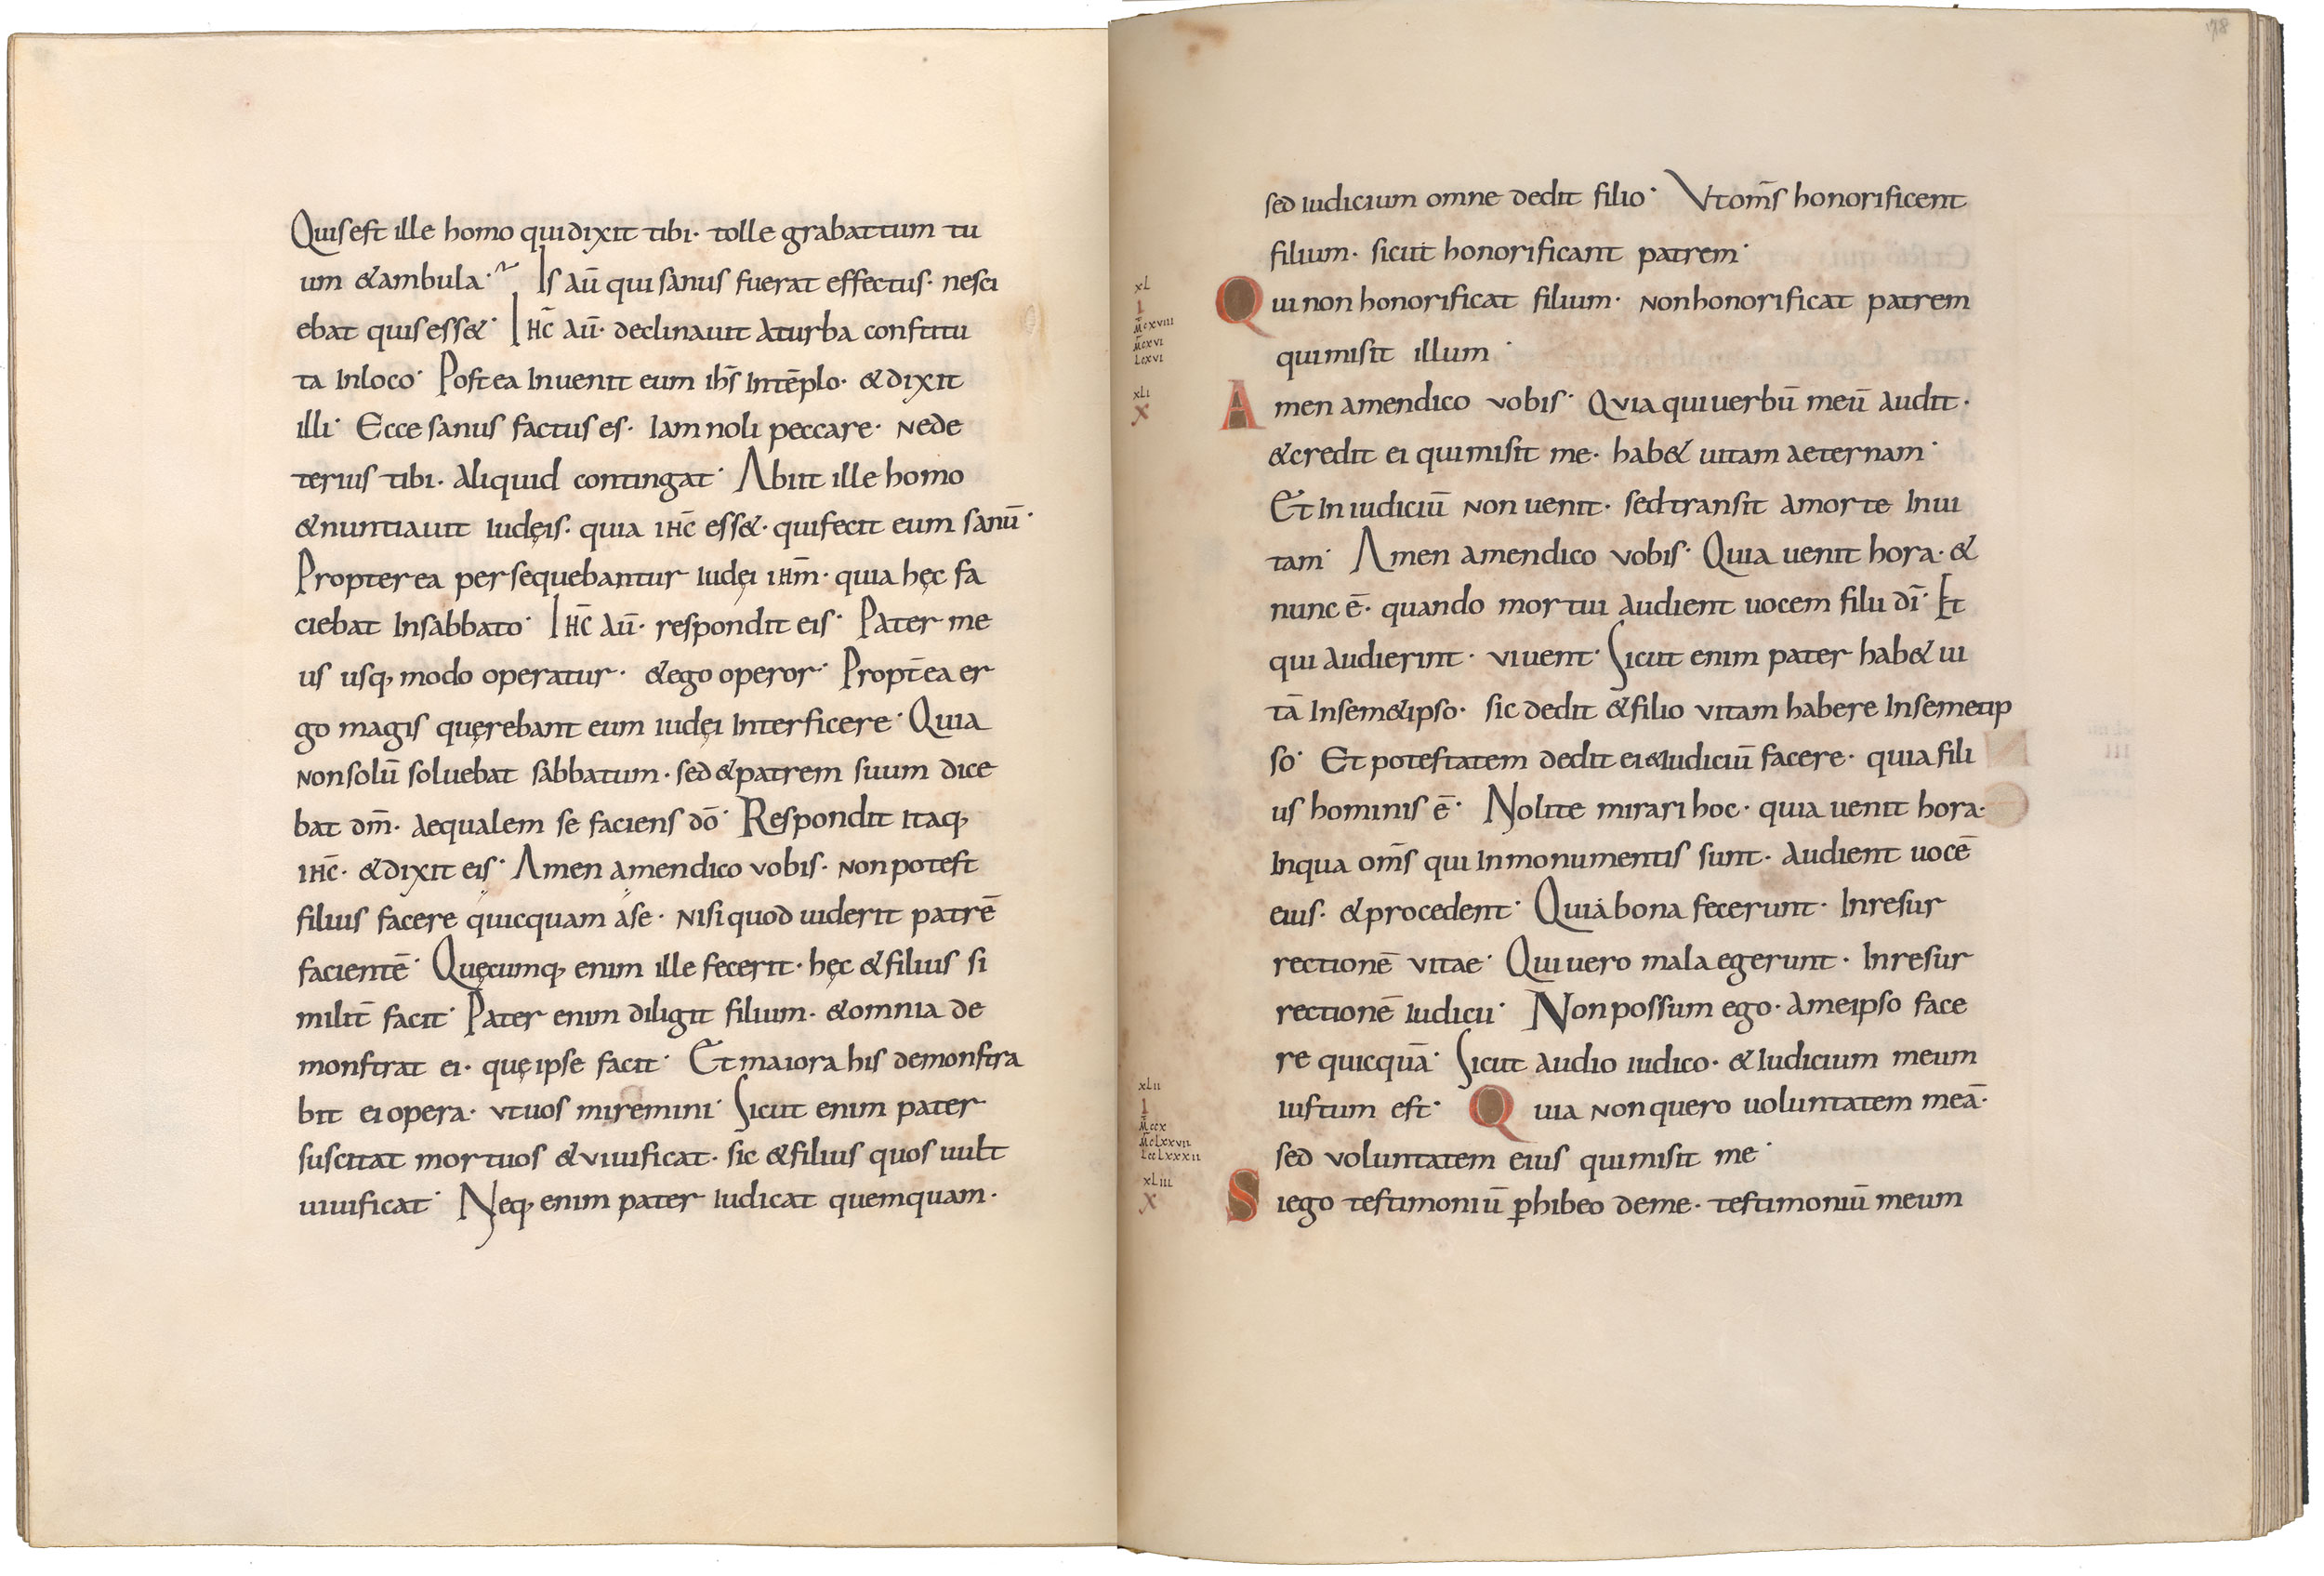 Quis est ille homo qui dixit tibi· tolle grabattum tu
um &ambula· Is aū qui sanus fuerat effectus· nesci
ebat quis ess&· Ihc̄ aū· declinauit aturba constitu
ta Inloco· Postea Inuenit eum ihs̄ Intēplo· &dixit
illi· Ecce sanus factus es· Iam noli peccare· Nede
terius tibi· aliquid contingat· Abiit ille homo
&nuntiauit iudęis· quia ihc̄ ess&· qui fecit eum sanū·
Propterea persequebantur iudęi ihm̄· quia hęc fa
ciebat Insabbato· Ihc̄ aū· respondit eis· Pater me
us usq, modo operatur· &ego operor· Propt̄ea er
go magis quęrebant eum iudęi Interficere· Quia
Non solū soluebat sabbatum· sed &patrem suum dice
bat dm̄· aequalem se faciens dō· Respondit itaq,
ihc̄· &dixit eis· Amen amen dico vobis· Non potest
filius facere quicquam ase· Nisi quod uiderit patrē
facientē· Quęcumq, enim ille fecerit· hęc &filius si
milit̄ facit· Pater enim diligit filium· &omnia de
monstrat ei· quę ipse facit· Et maiora his demonstra
bit ei opera· vt uos miremini· Sicut enim pater
suscitat mortuos &viuificat· sic &filius quos uult
uiuificat· Neq, enim pater iudicat quemquam·
178
sed iudicium omne dedit filio· Vt om̄s honorificent
filium· sicut honorificant patrem·
xl
I
M̄cxviii
M̄cxvi
Lcxvi
Qui non honorificat filium· Non honorificat patrem
qui misit illum·
xli
X
Amen amen dico vobis· Quia qui uerbū meū audit·
&credit ei qui misit me· hab& uitam aeternam·
Et In iudiciū Non uenit· sed transit amorte Inui
tam· Amen amen dico vobis· Quia uenit hora· &
nunc ē· quando mortui audient uocem filii dī· Et
qui audierint· viuent· Sicut enim pater hab& ui
tā Insem&ipso· sic dedit &filio vitam habere Insemetip
so· Et potestatem dedit ei &Iudiciū facere· quia fili
us hominis ē· Nolite mirari hoc· quia uenit hora·
Inqua om̄s qui Inmonumentis sunt· audient uocē
eius· &procedent· Qui bona fecerunt· Inresur
rectionē vitae· Qui uero mala egerunt· Inresur
rectionē iudicii· Non possum ego· ameipso face
re quicquā· Sicut audio iudico· &Iudicium meum
xlii
I
M̄ccx
M̄clxxvii
Lcclxxxii
iustum est· Quia Non quero uoluntatem meā·
sed voluntatem eius qui misit me·
xliii
X
Si ego testimoniū ꝑhibeo deme· testimoniū meum